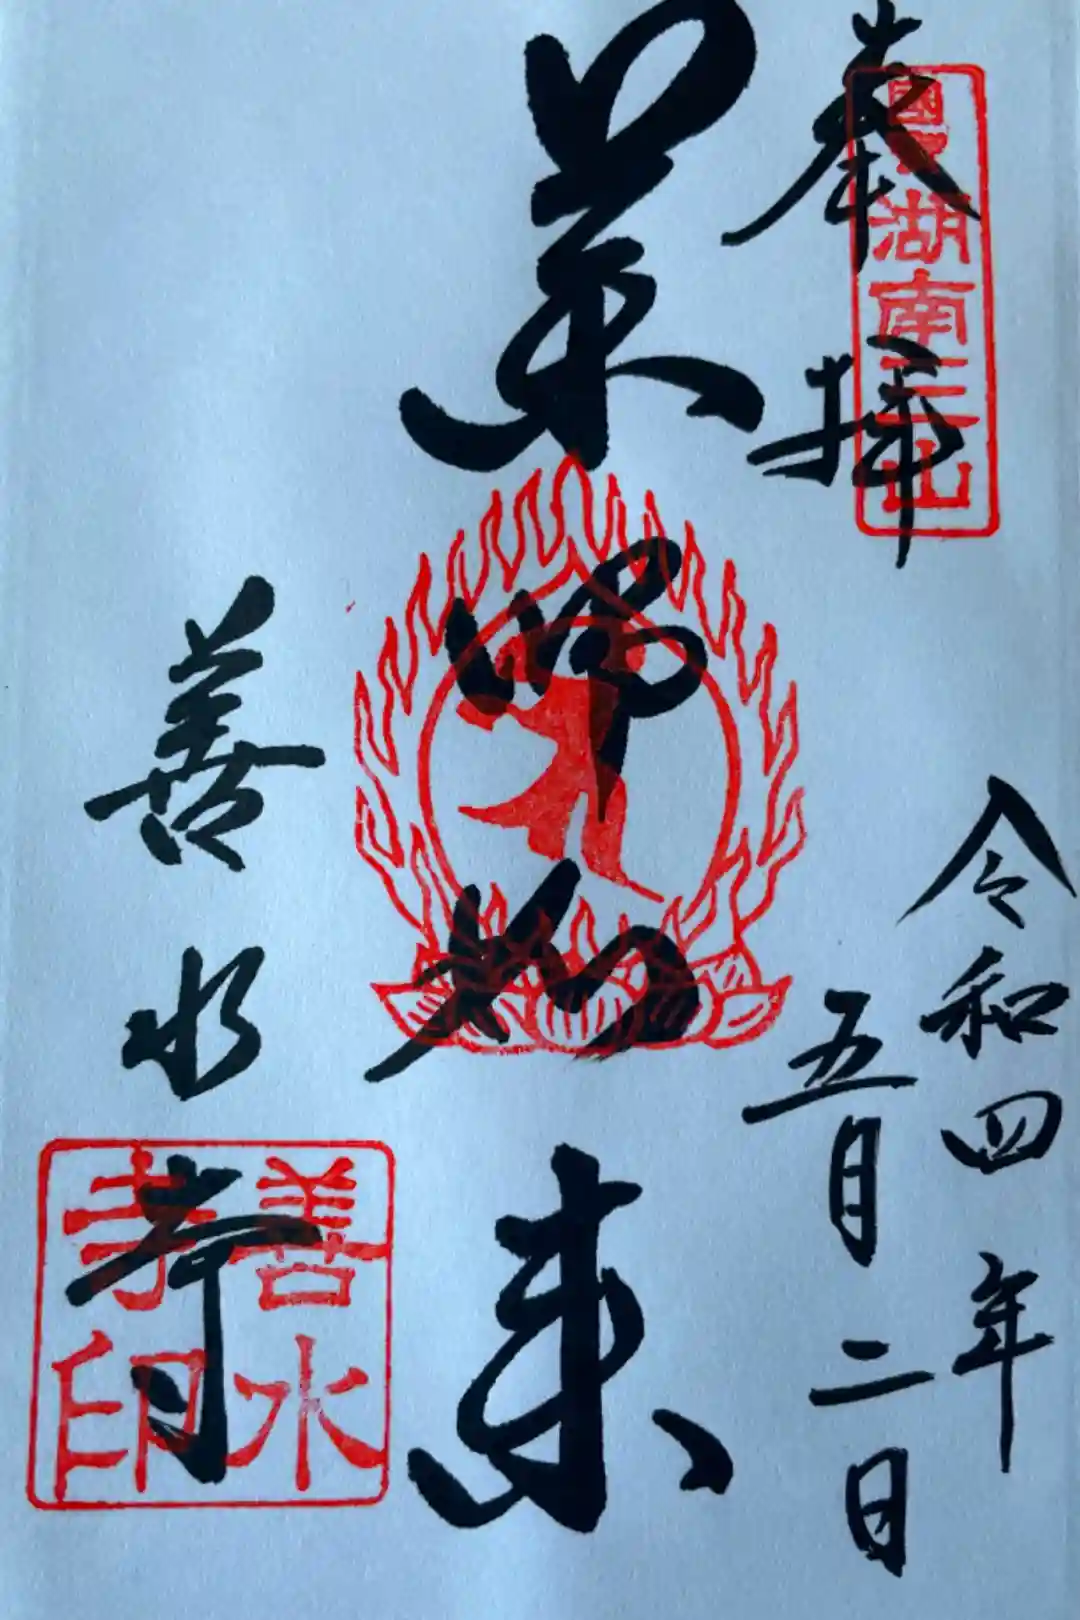 奉拝
國宝湖南三山
令和四年
五月二日
薬師如来
善水寺
善水
寺印